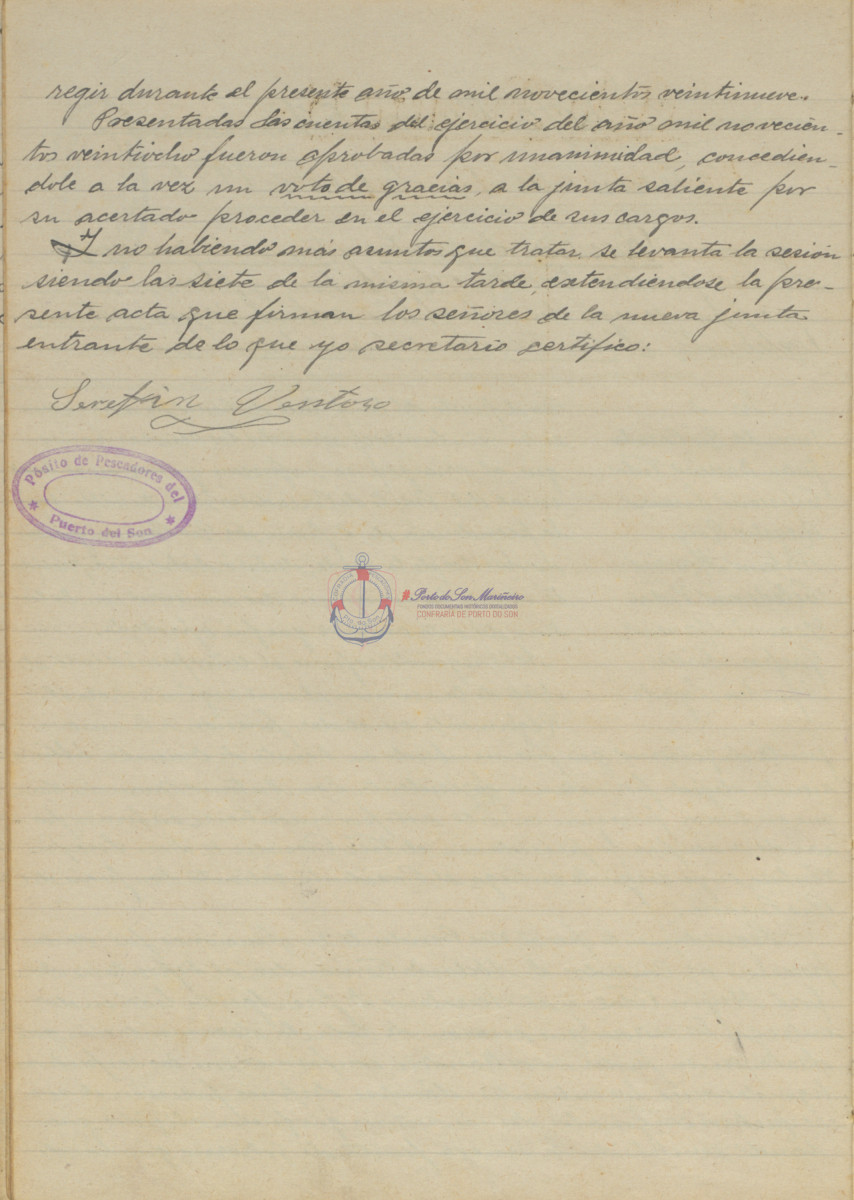 regir durante el presente año de mil novecientos veintinueve.
Presentadas las cuentas del ejercicio del año mil novecien-
tos veintiocho fueron aprobadas por unanimidad, concedien-
dole a la vez un voto de gracias, a la junta saliente por
su acertado proceder en el ejercicio de sus cargos.
Y no habiendo más asuntos que tratar, se levanta la sesión
siendo las siete de la misma tarde, extendiéndose la pre-
sente acta que firman los señores de la nueva junta
entrante de lo que yo secretario certifico:
Serefin Ventoso
Pósito de Pescadores del
Puerto del Son
Porto do Son Mariñeiro
FONDOS DOCUMENTAIS HISTÓRICOS DIXITALIZADOS
CONFRARÍA DE PORTO DO SON